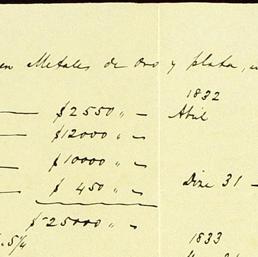 en Metales de Oro y plata,
1832
$ 2550 " - Abril
$ 12000 " -
$ 10000 " -
$ 450 " - Dize 31 -
$ 25000 " -
5/4 1833